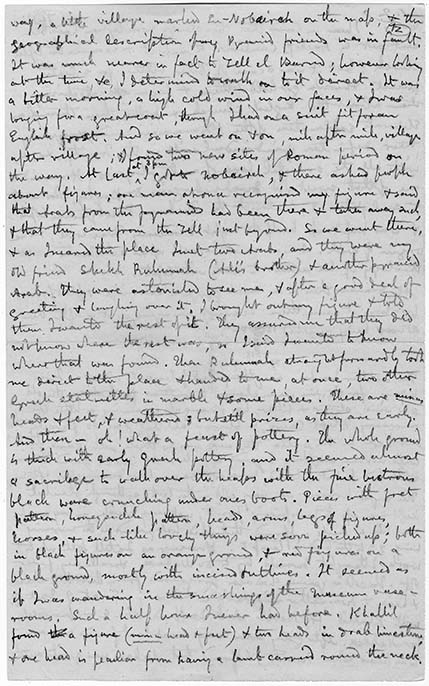 way, a little village marked En-Nobeireh on the map; & the
geographical description of my Pyramid friends was in fault.
It was much nearer in fact to Tell el Barud; however looking
at the time &c, I determined to walk on to it direct. It was
a bitter morning, a high cold wind in our faces, & I was
longing for a great coat, though I had on a suit fit for an
English frost. And so we went on & on, mile after mile, village
after village; & found two new sites of Roman period on
the way. At last, I got to Nobeireh, & there asked people
about figures; one man at once recognised my figure & said
that Arabs from the pyramids had been there & taken away such,
& that they came from the Tell just beyond. So we went there,
& as I neared the place I met two Arabs, and they were my
old friend Sheikh Ruhumah (Ali's brother) & another pyramid
Arab. They were astonished to see me, & after a good deal of
greeting & laughing over it, I brought out my figure & told
them I wanted the rest of it. They assured me that they did
not know where the rest was, so I said I wanted to know
where that was found. Then Ruhumah straightforwardly took
me direct to the place & handed to me, at once, two other
Greek statuettes in marble & some pieces. These are minus
heads & feet, & weathered; but still prizes, as they are early.
And then — oh! what a feast of pottery. The whole ground
is thick with early Greek pottery and it seemed almost
a sacrilege to walk over the heaps with the fine lustrous
black ware crunching under ones boots. Pieces with fret
pattern, honeysuckle pattern, heads, arms, legs of figures,
horses, & such-like lovely things were soon picked up; both
in black figures on an orange ground, & red figures on a
black ground, mostly with incised outlines. It seemed as
if I was wandering in the smashings of the Museum vase-
rooms. Such a half hour I never had before. Khallil
found a figure (minus head & feet) & two heads in drab limestone,
& one head is peculiar from having a lamb carried round the neck.